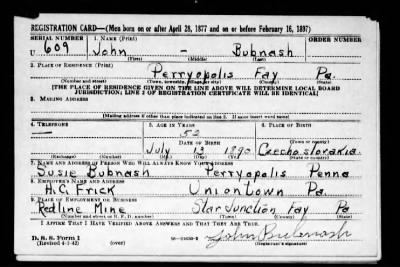 REGISTRATION CARD—(Men born on or after April 28, 1877 and on or before February 16, 1897)
SERIAL NUMBER 1. NAME (Print) ORDER NUMBER
U 609 John - Bubnash
(First) (Middle) (Last)
2. PLACE OF RESIDENCE (Print)
Perryopolis Fay Pa.
(Number and street) (Town, township, village, or city) (County) (State)
[THE PLACE OF RESIDENCE GIVEN ON THE LINE ABOVE WILL DETERMINE LOCAL BOARD
JURISDICTION; LINE 2 OF REGISTRATION CERTIFICATE WILL BE IDENTICAL]
3. MAILING ADDRESS
[Mailing address if other than place indicated on line 2. If same insert word same]
4. TELEPHONE 5. AGE IN YEARS 6. PLACE OF BIRTH
— 52
DATE OF BIRTH (Town or county)
July 13 1890 Czechoslovakia
(Exchange) (Number) (Mo.) (Day) (Yr.) (State or country)
7. NAME AND ADDRESS OF PERSON WHO WILL ALWAYS KNOW YOUR ADDRESS
Susie Bubnash Perryopolis Penna
8. EMPLOYER'S NAME AND ADDRESS
H.C. Frick Uniontown Pa.
9. PLACE OF EMPLOYMENT OR BUSINESS
Redline Mine Star Junction Fay Pa
(Number and street or R. F. D. number) (Town) (County) (State)
I AFFIRM THAT I HAVE VERIFIED ABOVE ANSWERS AND THAT THEY ARE TRUE.
D. S. S. Form 1
(Revised 4-1-42) (over) John Bubnash
(Registrant's signature)